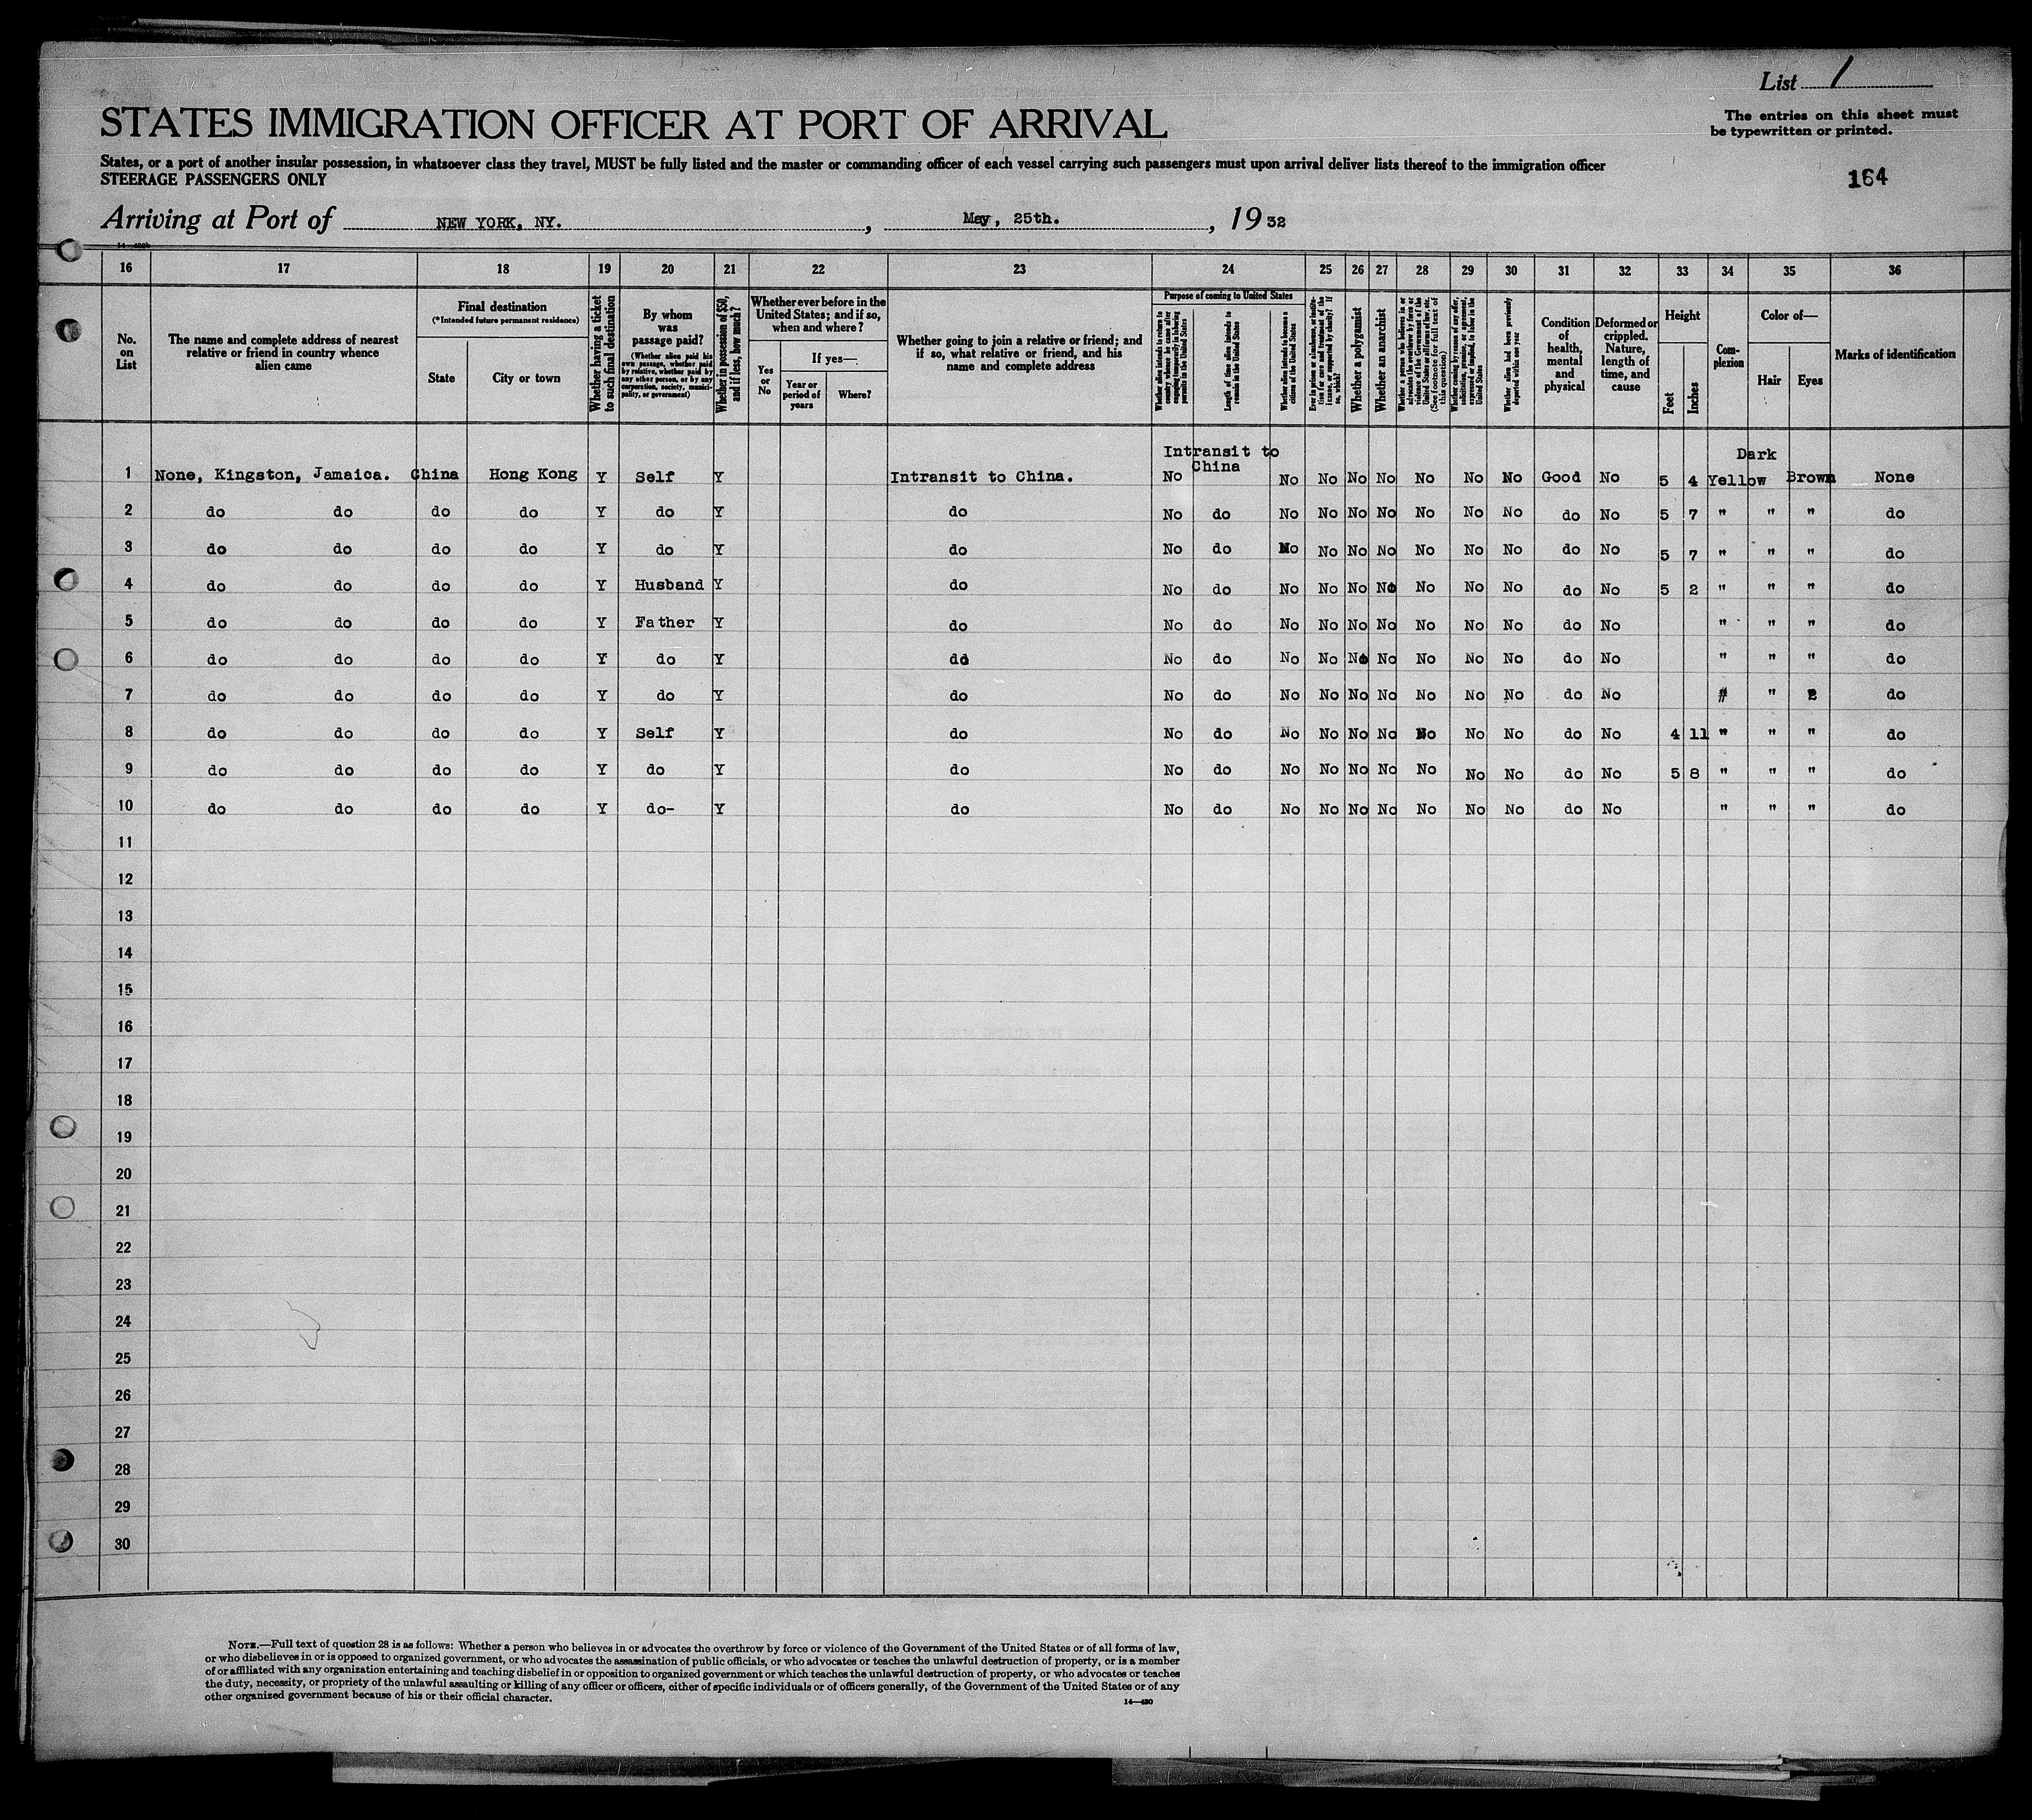 List 1
STATES IMMIGRATION OFFICER AT PORT OF ARRIVAL
The entries on this sheet must
be typewritten or printed.
States, or a port of another insular possession, in whatsoever class they travel, MUST be fully listed and the master or commanding officer of each vessel carrying such passengers must upon arrival deliver lists thereof to the immigration officer
STEERAGE PASSENGERS ONLY
164
Arriving at Port of NEW YORK, NY. , May, 25th. , 19 32
16 17 18 19 20 21 22 23 24 25 26 27 28 29 30 31 32 33 34 35 36
No. on List
The name and complete address of nearest relative or friend in country whence alien came
Final destination
(*Intended future permanent residence)
State
City or town
Whether having a ticket to such final destination
By whom was passage paid?
(Whether alien paid his own passage, whether paid by relative, whether paid by any other person, or by any corporation, society, municipality, or government)
Whether in possession of $50, and if less, how much?
Whether ever before in the United States; and if so, when and where?
Yes or No
If yes—
Year or period of years
Where?
Whether going to join a relative or friend; and if so, what relative or friend, and his name and complete address
Purpose of coming to United States
Whether alien intends to return to country whence he came after engaging temporarily in laboring pursuits in the United States
Length of time alien intends to remain in the United States
Whether alien intends to become a citizen of the United States
Ever in prison or almshouse, or institution for care and treatment of the insane, or supported by charity? If so, which?
Whether a polygamist
Whether an anarchist
Whether a person who believes in or advocates the overthrow by force or violence of the Government of the United States or all forms of law, etc. (See footnote for full text of this question)
Whether coming by reason of any offer, solicitation, promise, or agreement, expressed or implied, to labor in the United States
Whether alien had been previously deported within one year
Condition of health, mental and physical
Deformed or crippled. Nature, length of time, and cause
Height
Feet
Inches
Complexion
Color of—
Hair
Eyes
Marks of identification
Intransit to China
Dark
1 None, Kingston, Jamaica. China Hong Kong Y Self Y Intransit to China. No No No No No No No No Good No 5 4 Yellow Brown None
2 do do do do Y do Y do No do No No No No No No No do No 5 7 " " " do
3 do do do do Y do Y do No do No No No No No No No do No 5 7 " " " do
4 do do do do Y Husband Y do No do No No No No No No No do No 5 2 " " " do
5 do do do do Y Father Y do No do No No No No No No No do No " " " do
6 do do do do Y do Y do No do No No No No No No No do No " " " do
7 do do do do Y do Y do No do No No No No No No No do No # " do
8 do do do do Y Self Y do No do No No No No No No No do No 4 11 " " " do
9 do do do do Y do Y do No do No No No No No No No do No 5 8 " " " do
10 do do do do Y do- Y do No do No No No No No No No do No " " " do
11
12
13
14
15
16
17
18
19
20
21
22
23
24
25
26
27
28
29
30
NOTE.—Full text of question 28 is as follows: Whether a person who believes in or advocates the overthrow by force or violence of the Government of the United States or of all forms of law,
or who disbelieves in or is opposed to organized government, or who advocates the assassination of public officials, or who advocates or teaches the unlawful destruction of property, or is a member
of or affiliated with any organization entertaining and teaching disbelief in or opposition to organized government or which teaches the unlawful destruction of property, or who advocates or teaches
the duty, necessity, or propriety of the unlawful assaulting or killing of any officer or officers, either of specific individuals or of officers generally, of the Government of the United States or of any
other organized government because of his or their official character.
14—480